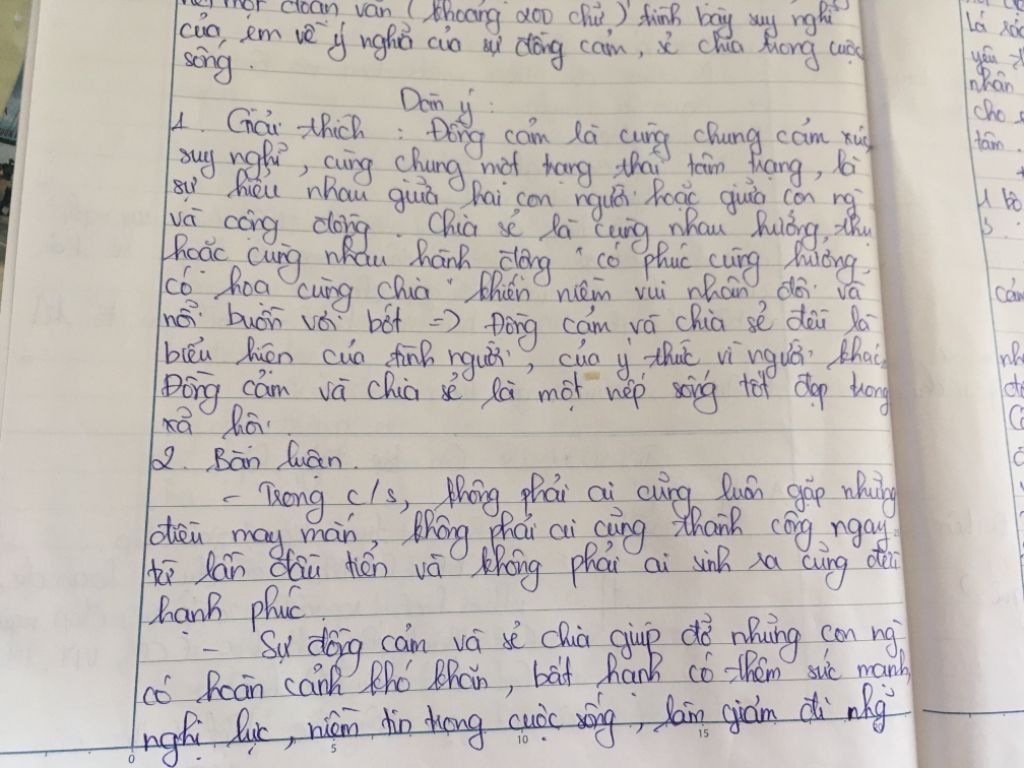 một đoạn văn (khoảng 200 chữ) trình bày suy nghĩ
của em về ý nghĩa của sự đồng cảm, sẻ chia trong cuộc
sống.
Dàn ý:
1. Giải thích: Đồng cảm là cùng chung cảm xúc
suy nghĩ, cùng chung một trạng thái tâm trạng, là
sự hiểu nhau giữa hai con người hoặc giữa con ng
và cộng đồng. Chia sẻ là cùng nhau hưởng, thụ
hoặc cùng nhau hành động "có phúc cùng hưởng,
có họa cùng chia" khiến niềm vui nhân đôi và
nỗi buồn vơi bớt => Đồng cảm và chia sẻ đều là
biểu hiện của tình người, của ý thức vì người khác.
Đồng cảm và chia sẻ là một nếp sống tốt đẹp trong
xã hội.
2. Bàn luận.
- Trong c/s, không phải ai cũng luôn gặp những
điều may mắn, không phải ai cũng thành công ngay
từ lần đầu tiên và không phải ai sinh ra cũng đều
hạnh phúc.
- Sự đồng cảm và sẻ chia giúp đỡ những con ng
có hoàn cảnh khó khăn, bất hạnh có thêm sức mạnh,
nghị lực, niềm tin trong cuộc sống, làm giảm đi nhg
0 5 10 15
yêu
nhân
cho
tâm.
bộ
cảm